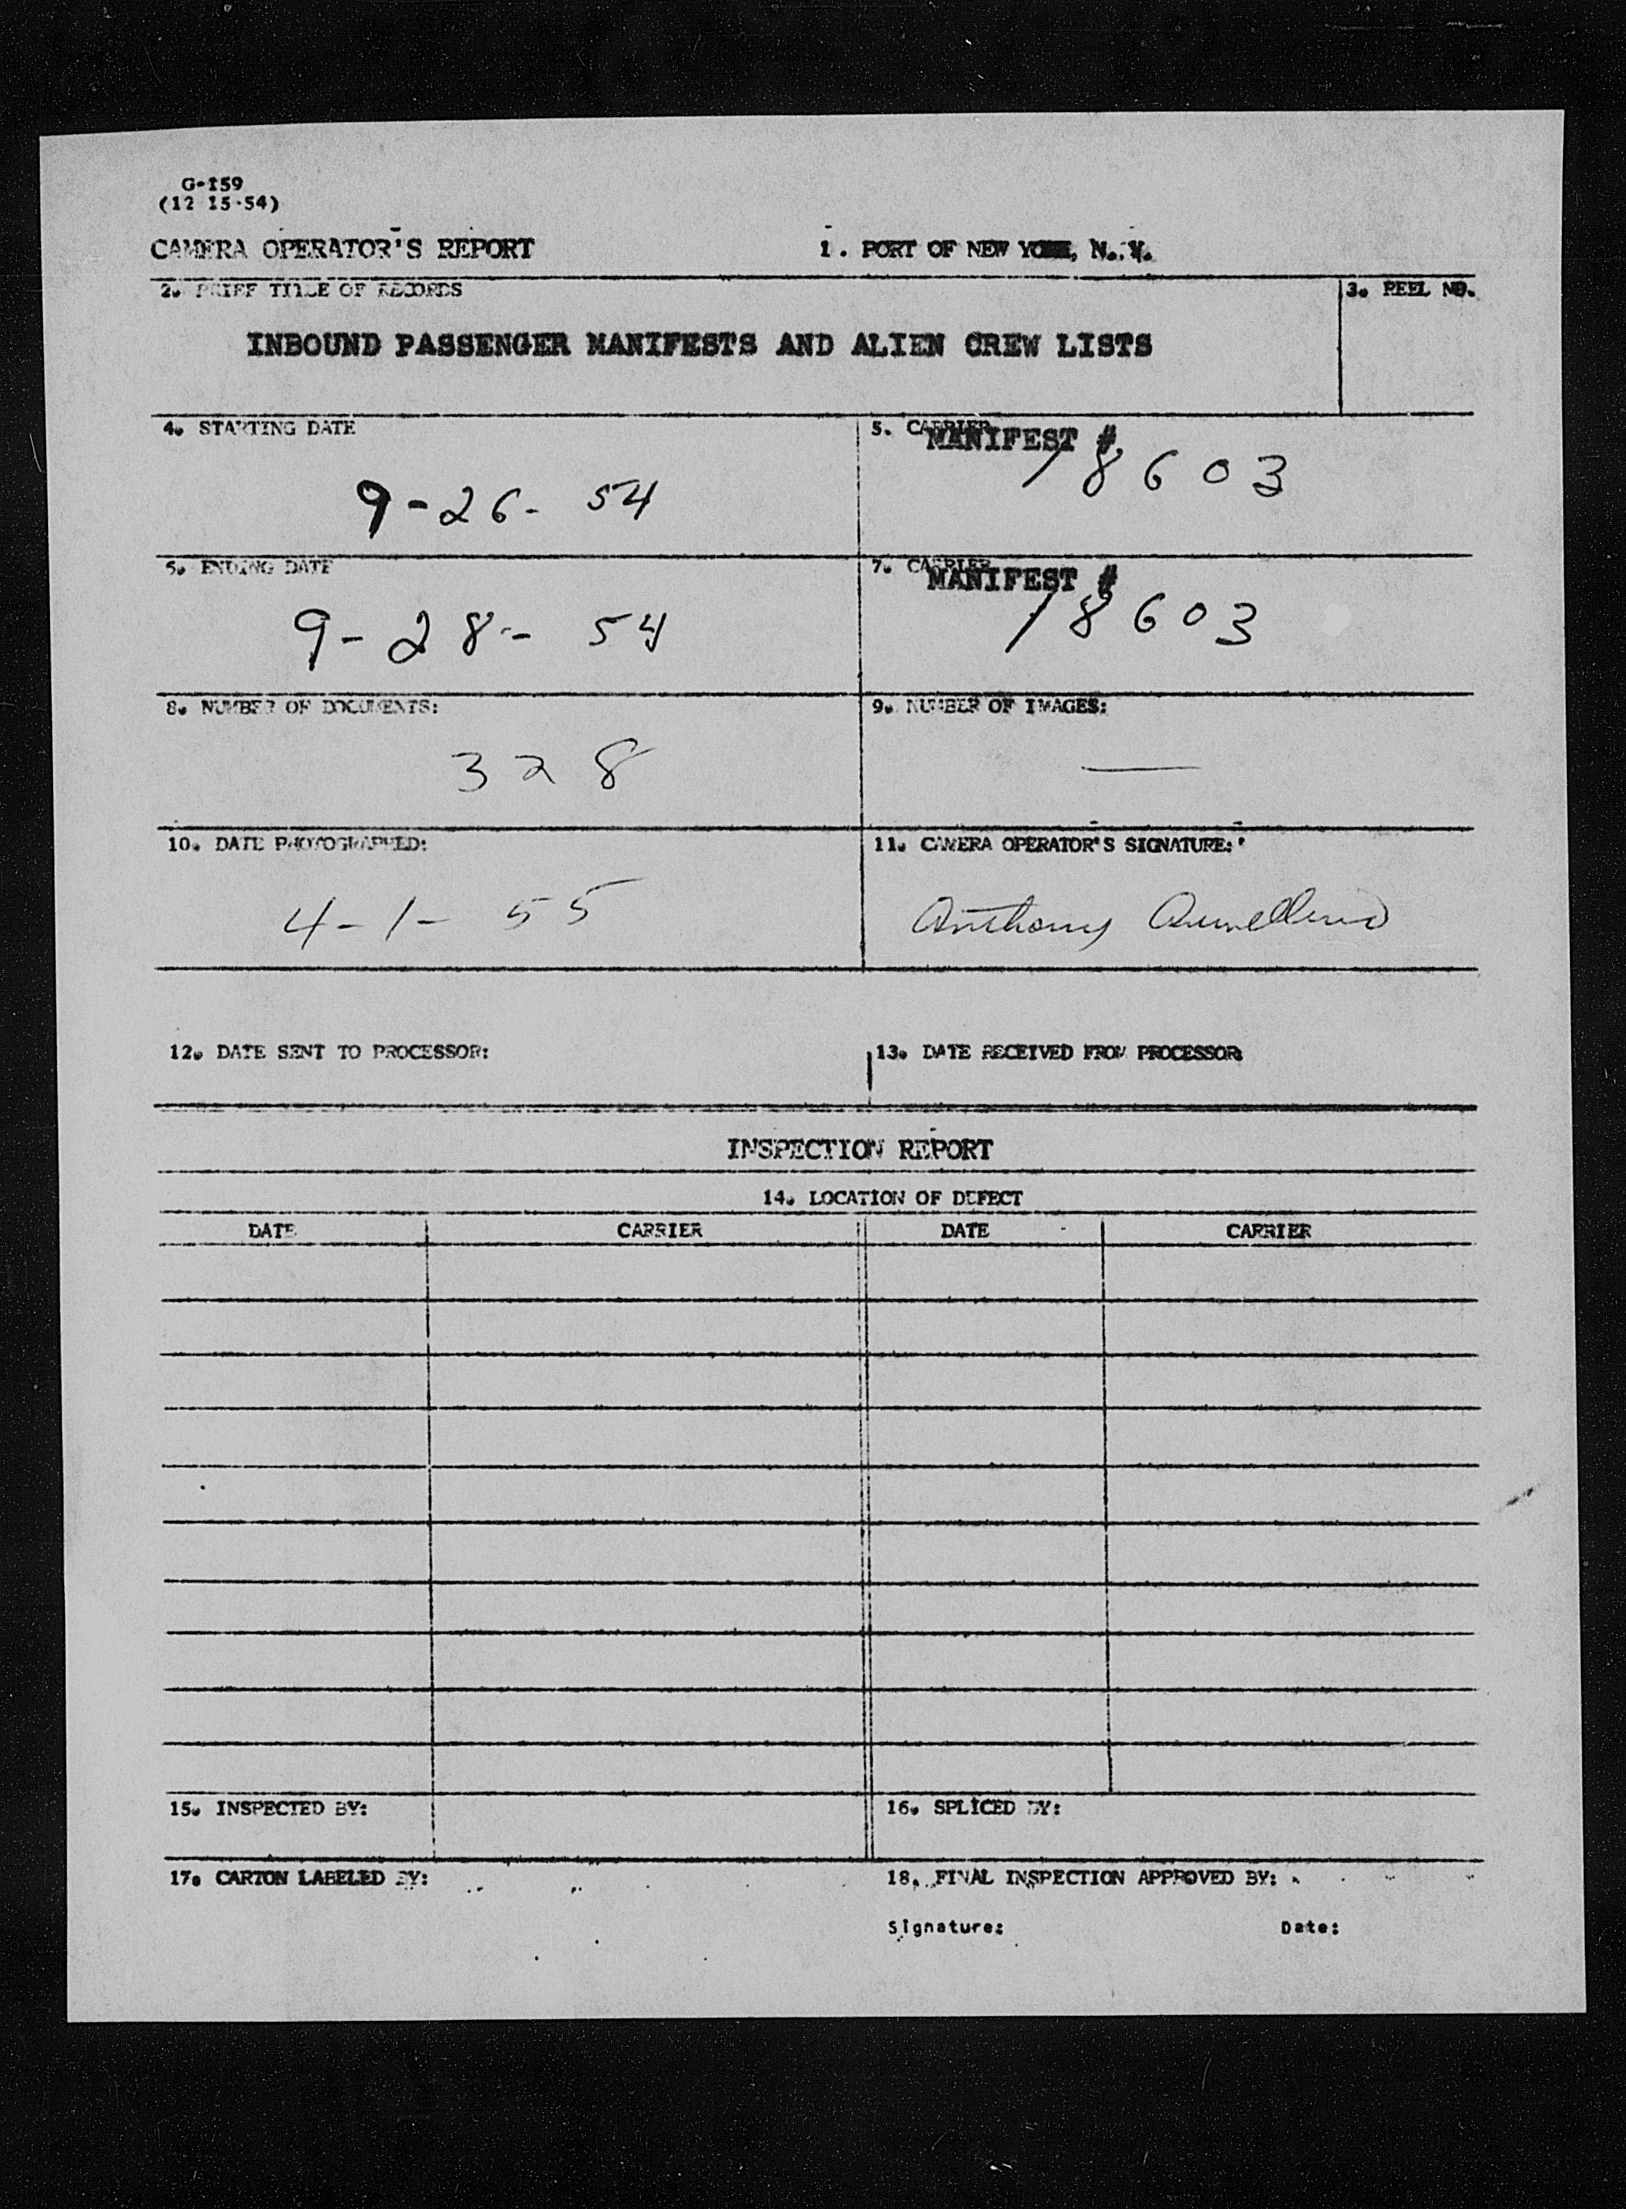 G-159
(12 15-54)
CAMERA OPERATOR'S REPORT 1. PORT OF NEW YORK, N. Y.
2. BRIEF TITLE OF RECORDS 3. REEL NO.
INBOUND PASSENGER MANIFESTS AND ALIEN CREW LISTS
4. STARTING DATE 5. CARRIER
MANIFEST #
9-26-54 18603
6. ENDING DATE 7. CARRIER
MANIFEST #
9-28-54 18603
8. NUMBER OF DOCUMENTS: 9. NUMBER OF IMAGES:
328 —
10. DATE PHOTOGRAPHED: 11. CAMERA OPERATOR'S SIGNATURE:
4-1-55 Anthony
12. DATE SENT TO PROCESSOR: 13. DATE RECEIVED FROM PROCESSOR
INSPECTION REPORT
14. LOCATION OF DEFECT
DATE CARRIER DATE CARRIER
15. INSPECTED BY: 16. SPLICED BY:
17. CARTON LABELED BY: 18. FINAL INSPECTION APPROVED BY:
Signature: Date: